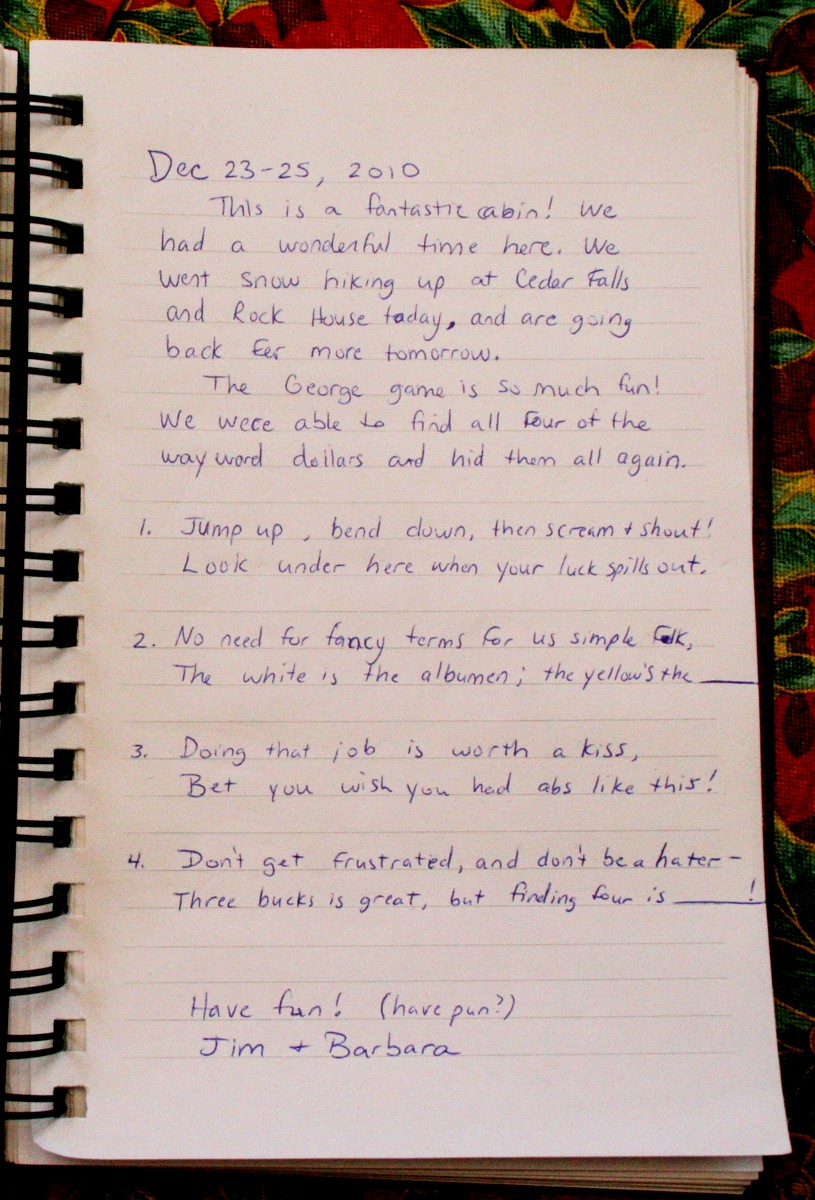 Dec 23-25, 2010
This is a fantastic cabin! We
had a wonderful time here. We
went snow hiking up at Cedar Falls
and Rock House today, and are going
back for more tomorrow.
The George game is so much fun!
We were able to find all four of the
way word dollars and hid them all again.
1. Jump up, bend down, then scream + shout!
Look under here when your luck spills out.
2. No need for fancy terms for us simple folk,
The white is the albumen; the yellow's the ____
3. Doing that job is worth a kiss,
Bet you wish you had abs like this!
4. Don't get frustrated, and don't be a hater-
Three bucks is great, but finding four is ____!
Have fun! (have pun?)
Jim + Barbara